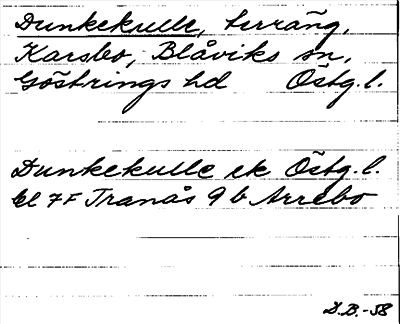 Dunkekulle, terräng,
Karsbo, Blåviks sn,
Göstrings hd Östg. l.
Dunkekulle ek Östg. l.
bl 7F Tranås 9 b Arrebo
D.B.-58